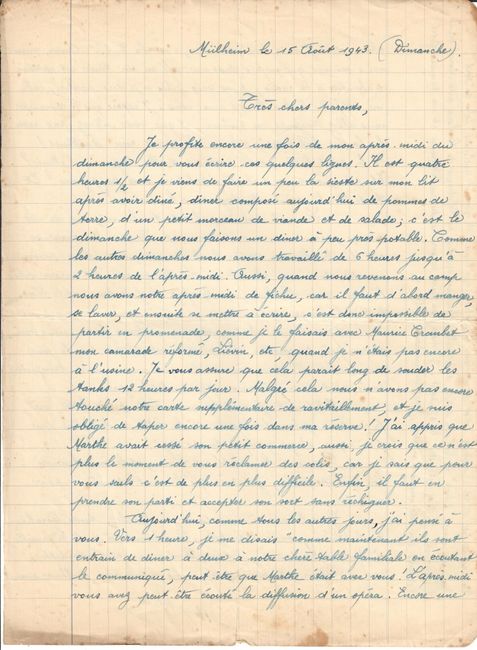 Mülheim le 15 Août 1943. (Dimanche).
Très chers parents,
Je profite encore une fois de mon après-midi du
dimanche pour vous écrire ces quelques lignes ! Il est quatre
heures 1/2 et je viens de faire un peu la sieste sur mon lit
après avoir diné, diner composé aujourd'hui de pommes de
terre, d'un petit morceau de viande et de salade ; c'est le
dimanche que nous faisons un diner à peu près potable. Comme
les autres dimanches nous avons travaillé de 6 heures jusqu'à
2 heures de l'après-midi. Aussi, quand nous revenons au camp
nous avons notre après-midi de fichu, car il faut d'abord manger,
se laver, et ensuite se mettre à écrire, c'est donc impossible de
partir en promenade, comme je le faisais avec Maurice Trembet
mon camarade réformé, Liévin, etc, quand je n'étais pas encore
à l'usine. Je vous assure que cela parait long de souder les
tanks 12 heures par jour. Malgré cela nous n'avons pas encore
touché notre carte supplémentaire de ravitaillement, et je suis
obligé de taper encore une fois dans ma réserve ! J'ai appris que
Marthe avait cessé son petit commerce, aussi je crois que ce n'est
plus le moment de vous réclamer des colis, car je sais que pour
vous seuls c'est de plus en plus difficile. Enfin, il faut en
prendre son parti et accepter son sort sans rechigner.
Aujourd'hui, comme tous les autres jours, j'ai pensé à
vous. Vers 1 heure, je me disais "comme maintenant ils sont
entrain de diner à deux à notre chère table familiale en écoutant
le communiqué, peut être que Marthe était avec vous ! L'après-midi
vous avez peut-être écouté la diffusion d'un opéra. Encore une